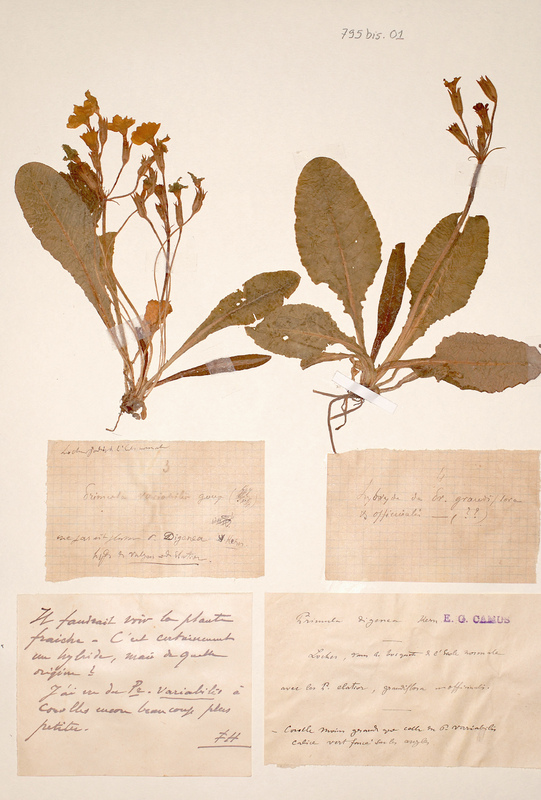 795 bis. 01
3
Primula variabilis
me paraît plutôt P. Digenea Kern
4
Hybride du Pr. grandiflora
officinalis — (??)
Il faudrait voir la plante
fraîche — C'est certainement
un hybride, mais de quelle
origine ?
J'ai vu du Pr. variabilis à
Corolles encore beaucoup plus
petites.
Primula digenea Kern E. G. CAMUS
Loches, de l'École normale
avec les P. elatior, grandiflora officinalis
— Corolle moins grande que celle du P. variabilis
calice vert foncé sur les angles